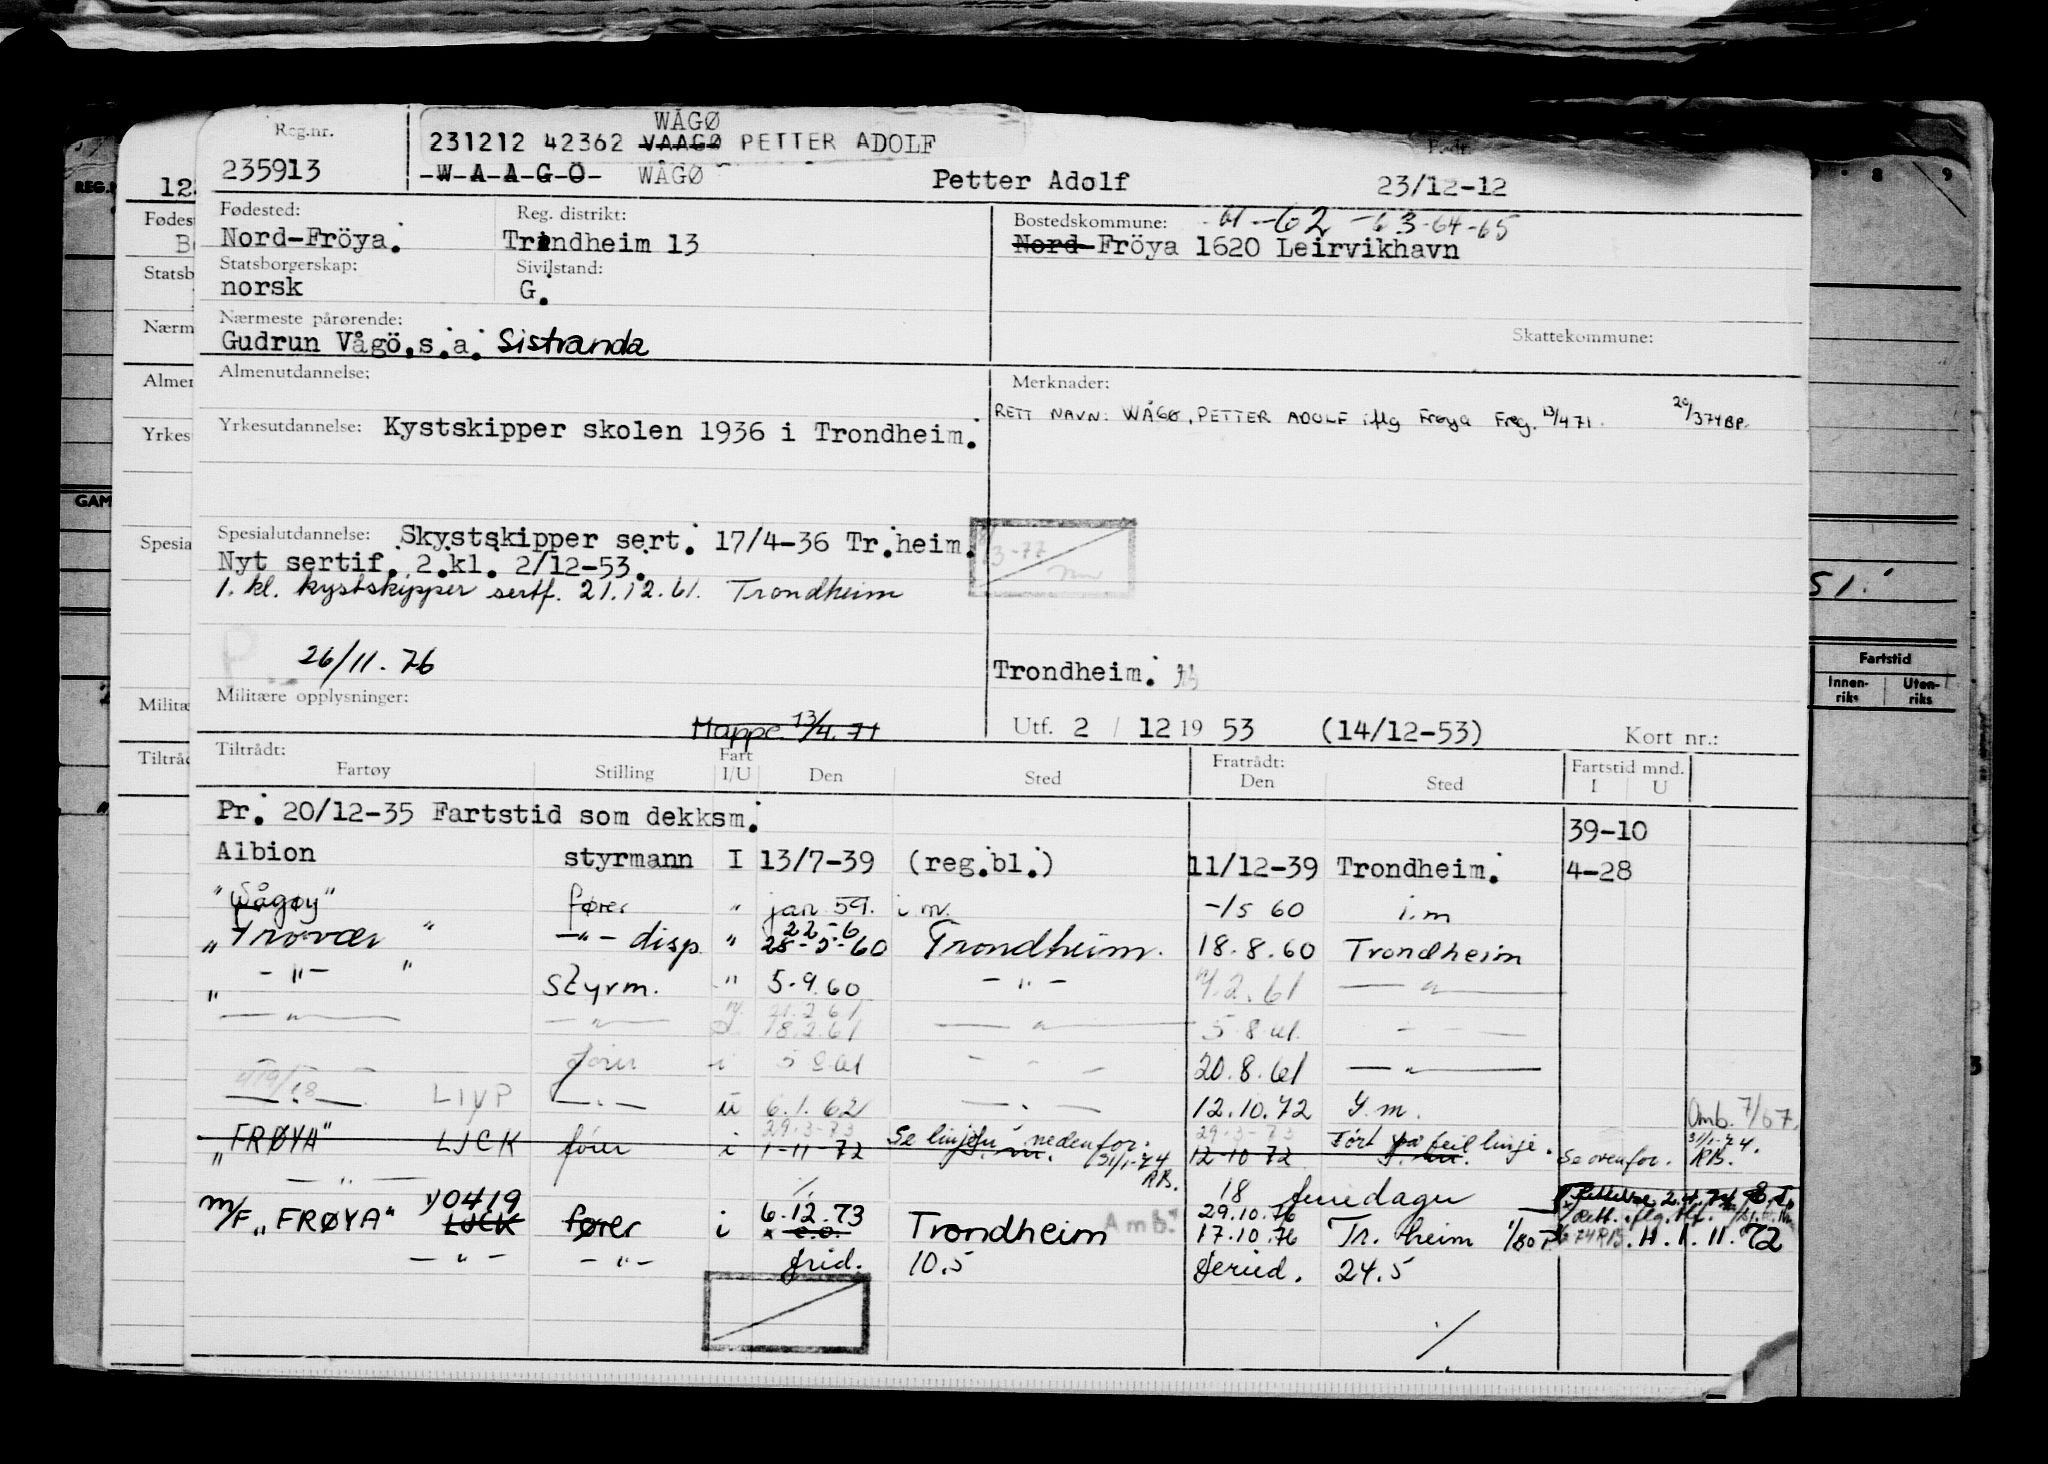 WÅGØ
231212 42362 VAAGØ PETTER ADOLF
Reg.nr. 235913 -W-A-A-G-O- WÅGØ Petter Adolf Født: 23/12-12
Fødested: Reg. distrikt: Bostedskommune: -61-62-63-64-65
Nord-Fröya. Trondheim 13 Nord-Fröya 1620 Leirvikhavn
Statsborgerskap: Sivilstand:
norsk G.
Nærmeste pårørende: Skattekommune:
Gudrun Vågö.s.a. Sistranda
Almenutdannelse: Merknader:
RETT NAVN: WÅGØ, PETTER ADOLF iflg Frøya Freg. 13/4 71. 20/3 74 BP.
Yrkesutdannelse: Kystskipper skolen 1936 i Trondheim.
Spesialutdannelse: Skystskipper sert. 17/4-36 Tr.heim.
Nyt sertif. 2.kl. 2/12-53.
1. kl. kystskipper sertf. 21.12.61. Trondheim
26/11.76
Trondheim.
Militære opplysninger:
Mappe 13/4.71
Utf. 2 / 12 19 53 (14/12-53) Kort nr.:
Tiltrådt: Fratrådt: Fartstid mnd.
Fartøy Stilling Fart I/U Den Sted Den Sted I U
Pr. 20/12-35 Fartstid som dekksm. 39-10
Albion styrmann I 13/7-39 (reg.bl.) 11/12-39 Trondheim. 4-28
"Vågøy" fører " jan 59. i.m. -/5 60 i.m
22-6
"Trovær" -"- disp. " 28-5-60 Trondheim. 18.8.60 Trondheim
" -"- " Styrm. " 5.9.60 -"- 2.61 -"-
21.2.61
-"- -"- 18.2.61 -"- 5.8.61 - - -
fører i 5 8 61 - - - 20.8.61 -"-
-"- LIVP -"- u 6.1.62 -"- 12.10.72 Y.m. Omb. 7/67.
29-3-73 29-3-73
"FRØYA" LJCK fører i 1-11-72 Se linjen nedenfor. 31/1-74 RB. 12-10 72 Ført på feil linje. Se ovenfor. 31/1-74. RB.
-"- 18 feriedager
M/F "FRØYA" LJCK fører i 6.12.73 Trondheim Amb. 29.10.76
17.10.76 Tr. heim 1.11.72
-"- -"- frid. 10.5 feried. 24.5
REG.
Fødes
Statsb
Nærm
Almen
Yrkes
GAM
Spesia
Militæ
Tiltråd
8 9
51.
Fartstid
Innenriks Utenriks